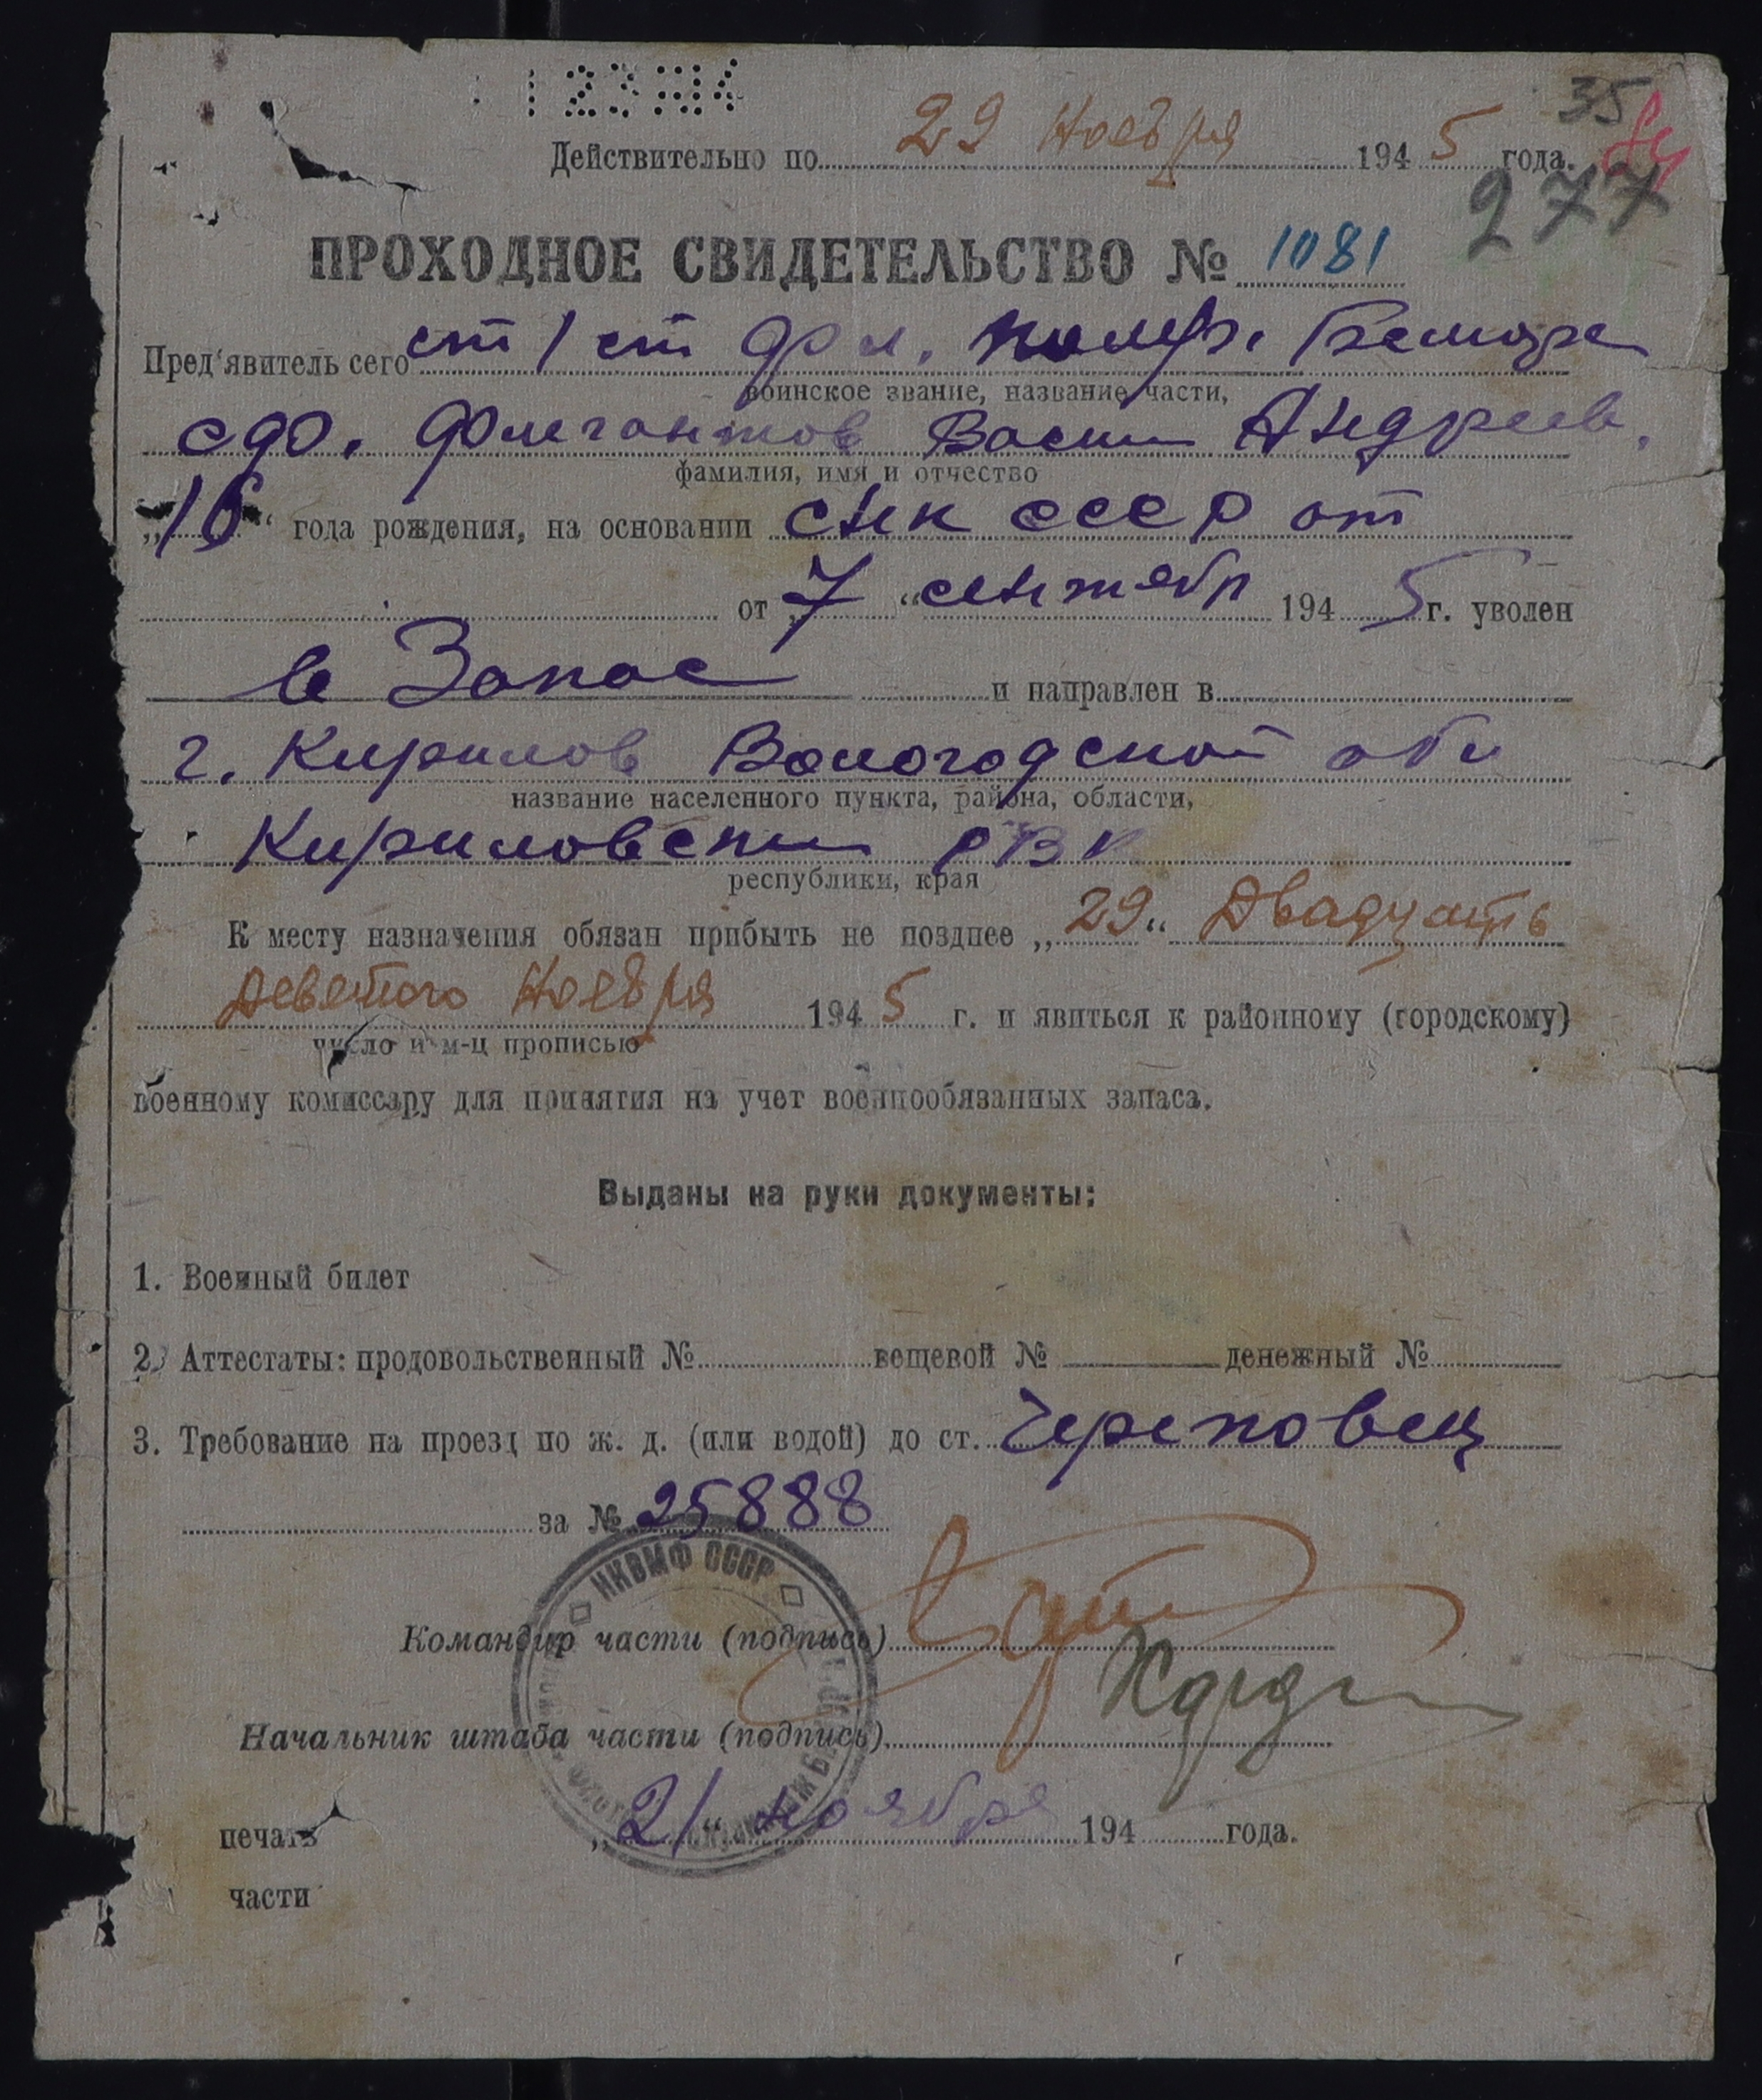 35
Действительно по 29 Ноября 1945 года.
277
ПРОХОДНОЕ СВИДЕТЕЛЬСТВО № 1081
Пред'явитель сего ст 1 ст
воинское звание, название части,
Андреев.
фамилия, имя и отчество
„16“ года рождения, на основании СНК СССР от
от „7“ сентябр 1945 г. уволен
в Запас и направлен в
г. Кирилов Вологодской обл
название населенного пункта, района, области,
Кириловский РВК
республики, края
К месту назначения обязан прибыть не позднее „29“ Двадцать
Девятого Ноября 1945 г. и явиться к районному (городскому)
число и м-ц прописью
военному комиссару для принятия на учет военнообязанных запаса.
Выданы на руки документы:
1. Военный билет
2. Аттестаты: продовольственный № вещевой № денежный №
3. Требование на проезд по ж. д. (или водой) до ст. Череповец
за № 25888
НКВМФ СССР
Командир части (подпись)
Начальник штаба части (подпись)
„21“ ноября 194 года.
печать
части